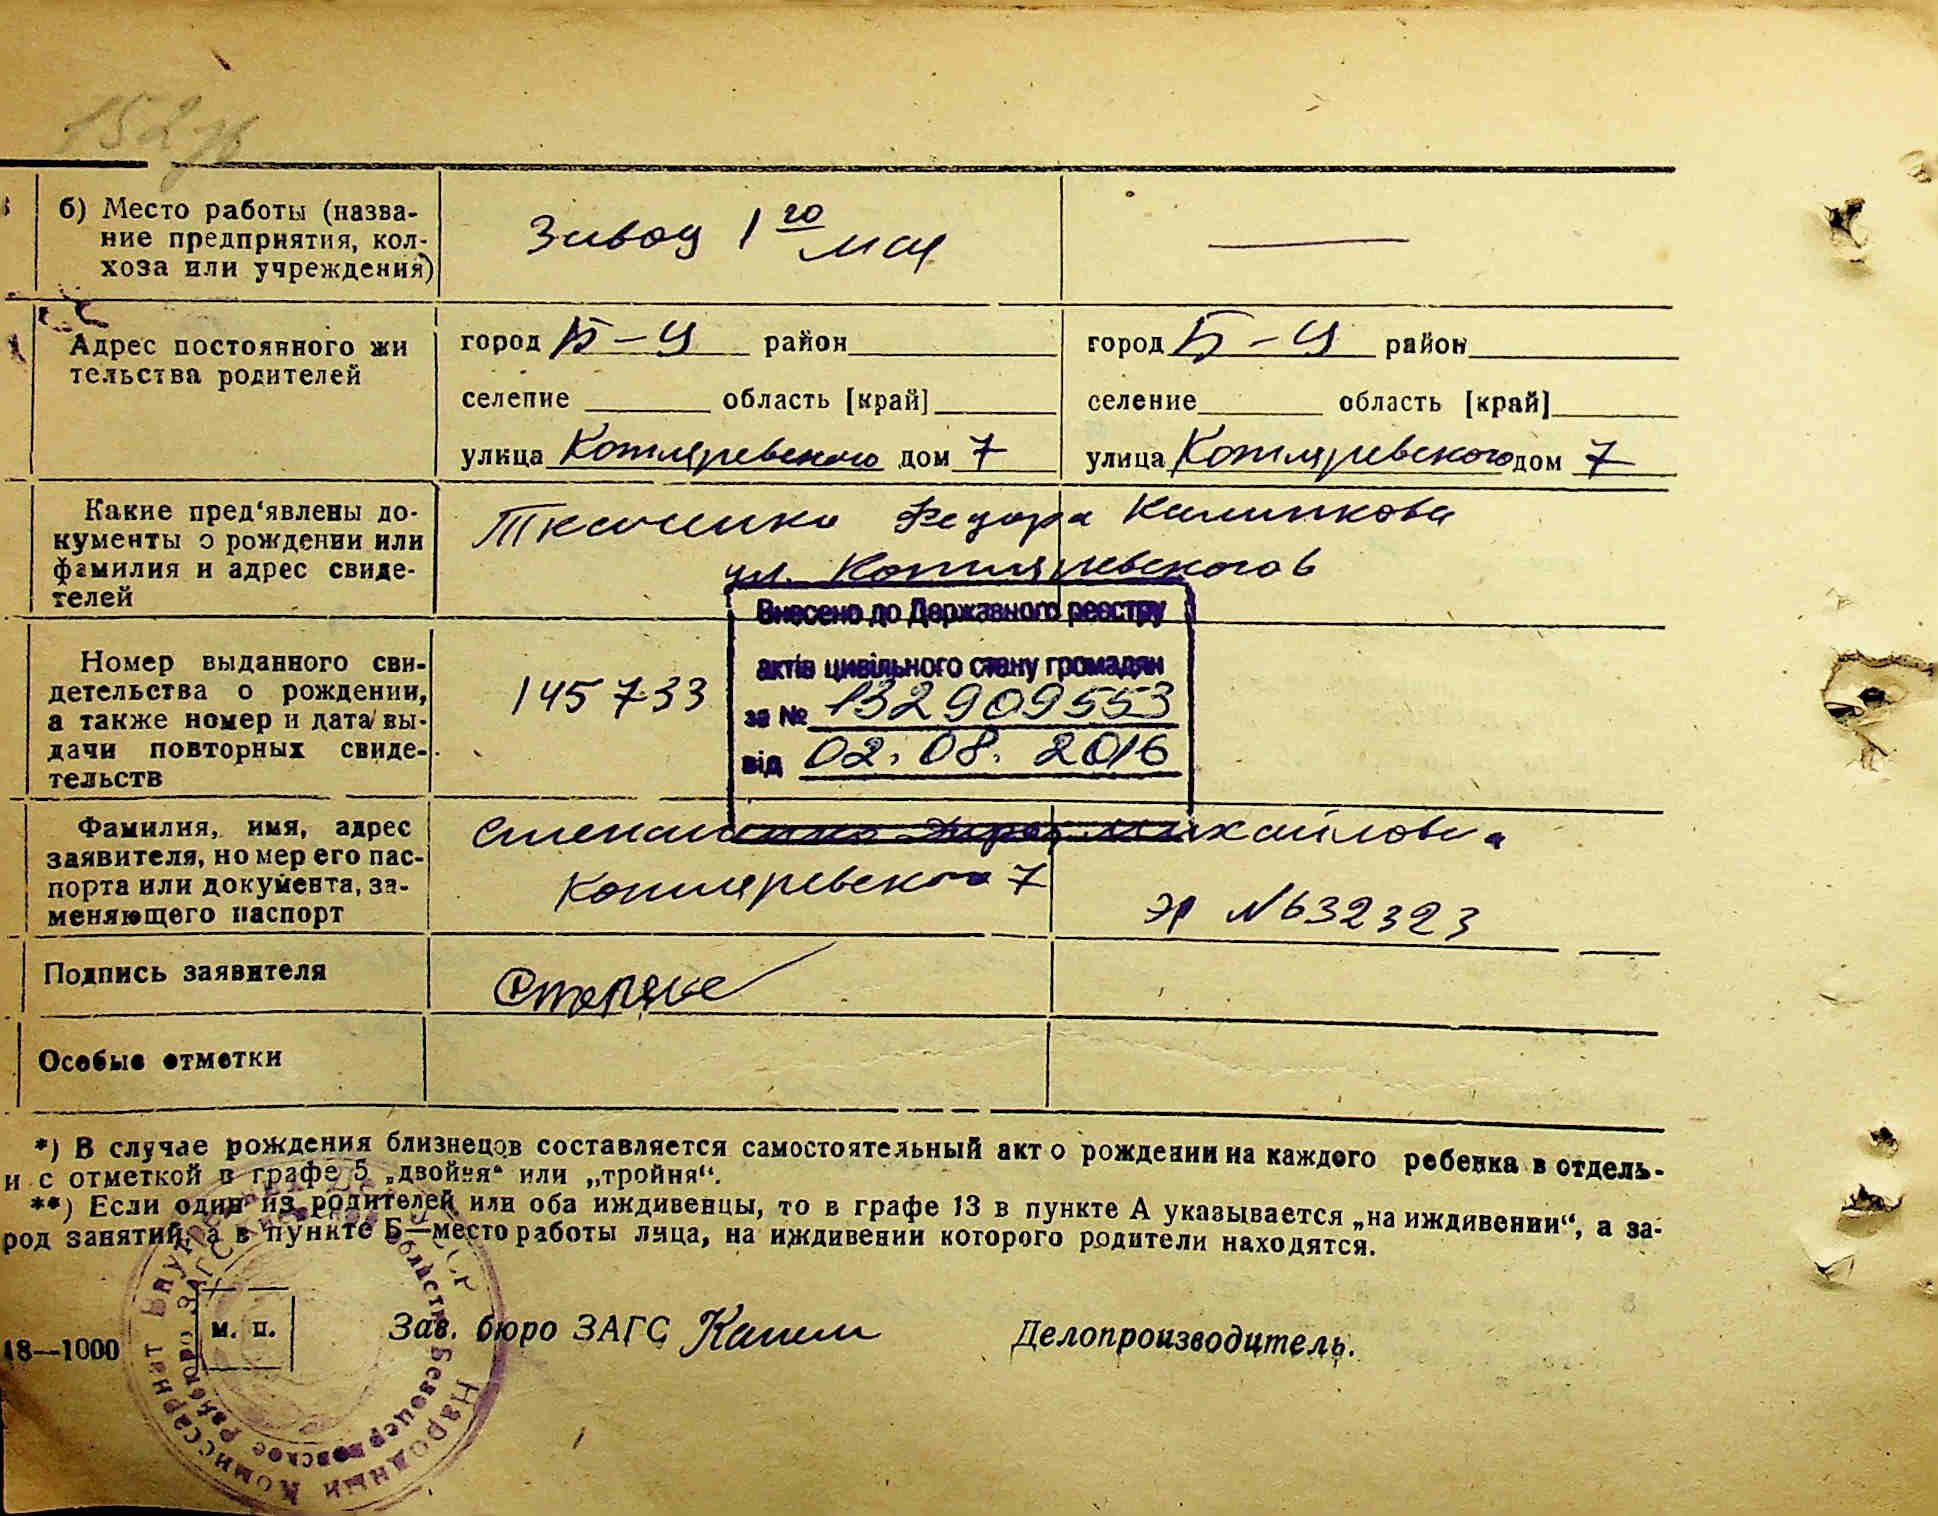 152
б) Место работы (назва-
ние предприятия, кол-
хоза или учреждения)
Завод 1го мая
Адрес постоянного жи
тельства родителей
город Б-Ц район
селение область [край]
улица Котляревского дом 7
город Б-Ц район
селение область [край]
улица Котляревского дом 7
Какие пред'явлены до-
кументы о рождении или
фамилия и адрес свиде-
телей
Ткаченко Федора Калинкова
ул. Котляревского 6
Внесено до Державного реєстру
актів цивільного стану громадян
за № 132909553
від 02.08.2016
Номер выданного сви-
детельства о рождении,
а также номер и дата вы-
дачи повторных свиде-
тельств
145733
Фамилия, имя, адрес
заявителя, номер его пас-
порта или документа, за-
меняющего паспорт
Михайловна
Котляревского 7
эр №632323
Подпись заявителя
Особые отметки
*) В случае рождения близнецов составляется самостоятельный акт о рождении на каждого ребенка в отдель-
и с отметкой в графе 5 „двойня“ или „тройня“.
**) Если один из родителей или оба иждивенцы, то в графе 13 в пункте А указывается „на иждивении“, а за-
род занятий, а в пункте Б—место работы лица, на иждивении которого родители находятся.
м. п.
Зав. бюро ЗАГС
Делопроизводитель.
18—1000
Народный Комиссариат Внутрен
Белоцерковское Райбюро ЗАГС